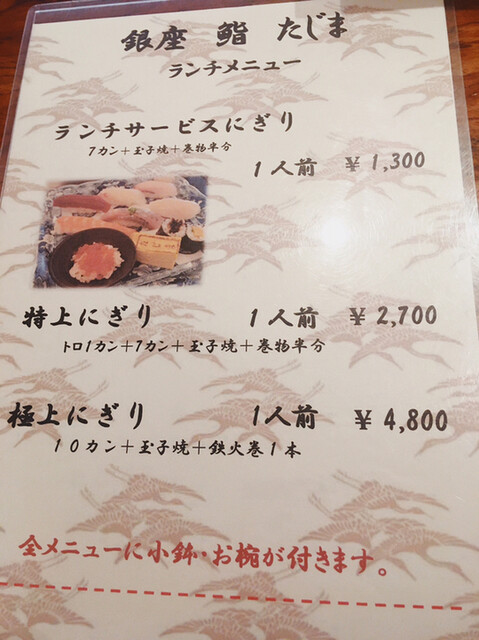 銀座 鮨 たじま
ランチメニュー
ランチサービスにぎり
7カン+玉子焼+巻物半分
1人前 ¥1,300
特上にぎり 1人前 ¥2,700
トロ1カン+7カン+玉子焼+巻物半分
極上にぎり 1人前 ¥4,800
10カン+玉子焼+鉄火巻1本
全メニューに小鉢・お椀が付きます。